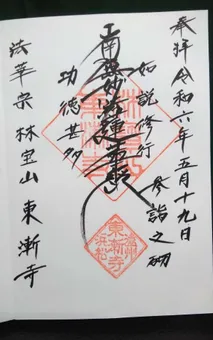 奉拝 令和六年五月十九日
参詣之砌
如説修行
南無妙法蓮華経
功徳甚多
法華宗 林宝山 東漸寺
遠州
東漸寺
浜松